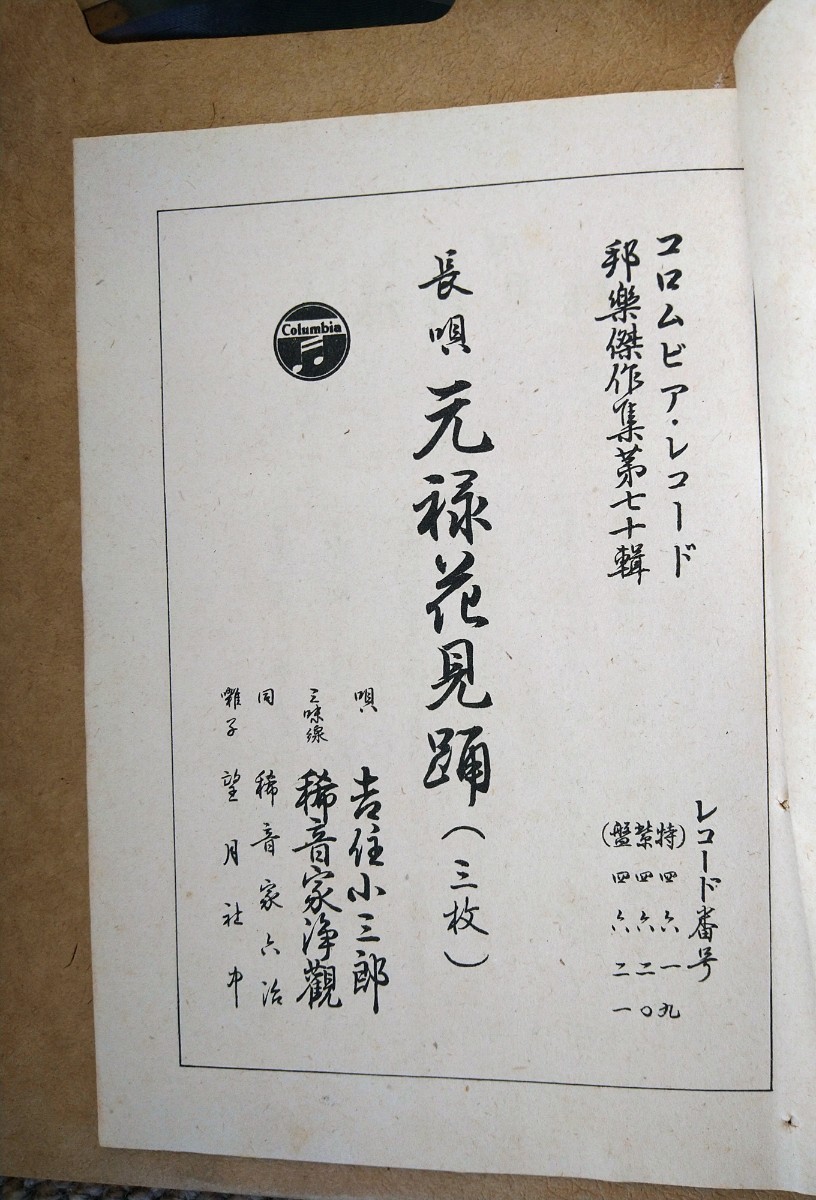 コロムビア・レコード
邦樂傑作集第七十輯
レコード番号
(特) 四六一九
紫 四六二〇
(盤 四六二一
長唄 元禄花見踊(三枚)
Columbia
唄 吉住小三郎
三味線 稀音家浄觀
同 稀音家六治
囃子 望月社中